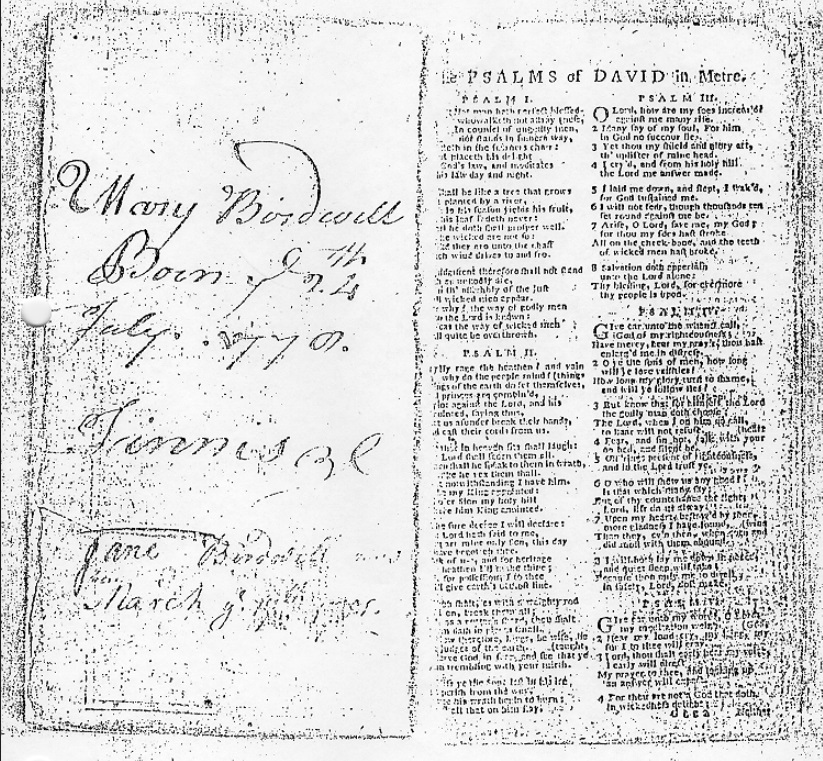 Mary Birdwell
Born ye 24th
July 1770.
Finnis
Jane Birdwell
March ye
PSALMS of DAVID in Metre.
PSALM I.
man hath perfect blessedness
who walketh not astray
In counsel of ungodly men,
nor stands in sinners way,
in the scorners chair:
placeth his delight
God's law, and meditates
his law day and night.
shall be like a tree that grows
planted by a river,
in his season yields his fruit,
leaf fadeth never:
he doth shall prosper well.
wicked are not so:
they are unto the chaff
wind drives to and fro.
judgment therefore shall not stand
ungodly die,
assembly of the just
wicked men appear.
why? the way of godly men
the Lord is known:
the way of wicked men
quite be overthrown.
PSALM II.
rage the heathen? and vain
why do the people mind? [things
of the earth do set themselves,
princes are combin'd,
plot against the Lord, and his
saying thus,
us asunder break their bands,
cast their cords from us.
in heaven sits shall laugh:
Lord shall scorn them all.
shall he speak to them in wrath,
he vex them shall.
notwithstanding I have him
my King appointed:
Sion my holy hill
him King anointed.
sure decree I will declare:
Lord hath said to me,
mine only Son, this day
and for heritage
heathen I'll
for possession I to thee
give earth's utmost line.
shalt, as with a weighty rod
break them all:
thou shalt
therefore, kings, be wise,
judges of the earth. [taught,
God in fear, and see that ye
trembling with your mirth.
ye the Son; lest in his ire,
perish from the way,
his wrath begin to burn:
all that on him stay.
PSALM III.
O Lord, how are my foes increas'd?
against me many rise.
2 Many say of my soul, For him
in God no succour lies.
3 Yet thou my shield and glory art,
th' uplifter of mine head.
4 I cry'd, and from his holy hill
the Lord me answer made.
5 I laid me down, and slept, I wak'd,
for God sustained me.
6 I will not fear, though thousands ten
set round against me be.
7 Arise, O Lord, save me, my God;
for thou my foes hast stroke
All on the cheek-bone, and the teeth
of wicked men hast broke.
8 Salvation doth appertain
unto the Lord alone:
Thy blessing, Lord, for evermore
thy people is upon.
PSALM IV.
Give ear unto me when I call,
God of my righteousness;
Have mercy, hear my pray'r; thou hast
enlarg'd me in distress.
2 O ye the sons of men, how long
will ye love vanities?
How long my glory turn to shame,
and will ye follow lies?
3 But know that for himself the Lord
the godly man doth choose:
The Lord, when I on him do call,
to hear will not refuse.
4 Fear, and sin not, talk with your
on bed, and silent be.
5 Off'rings present of righteousness,
and in the Lord trust ye.
6 O who will shew us any good?
is that which many say:
But of thy countenance the light,
Lord, lift on us alway.
7 Upon my heart, bestow'd by thee,
more gladness I have found,
Than they, ev'n then, when corn and
did most with them abound.
8 I will both lay me down in peace,
and quiet sleep will take;
Because thou only me to dwell
in safety, Lord, dost make.
Give ear unto my words, O Lord,
my meditation weigh.
2 Hear my loud cry, my King, my
for I to thee will pray.
3 Lord, thou shalt early hear my voice:
I early will direct
My pray'r to thee; and looking up
an answer will expect.
4 For thou art not a God that doth
in wickedness delight: